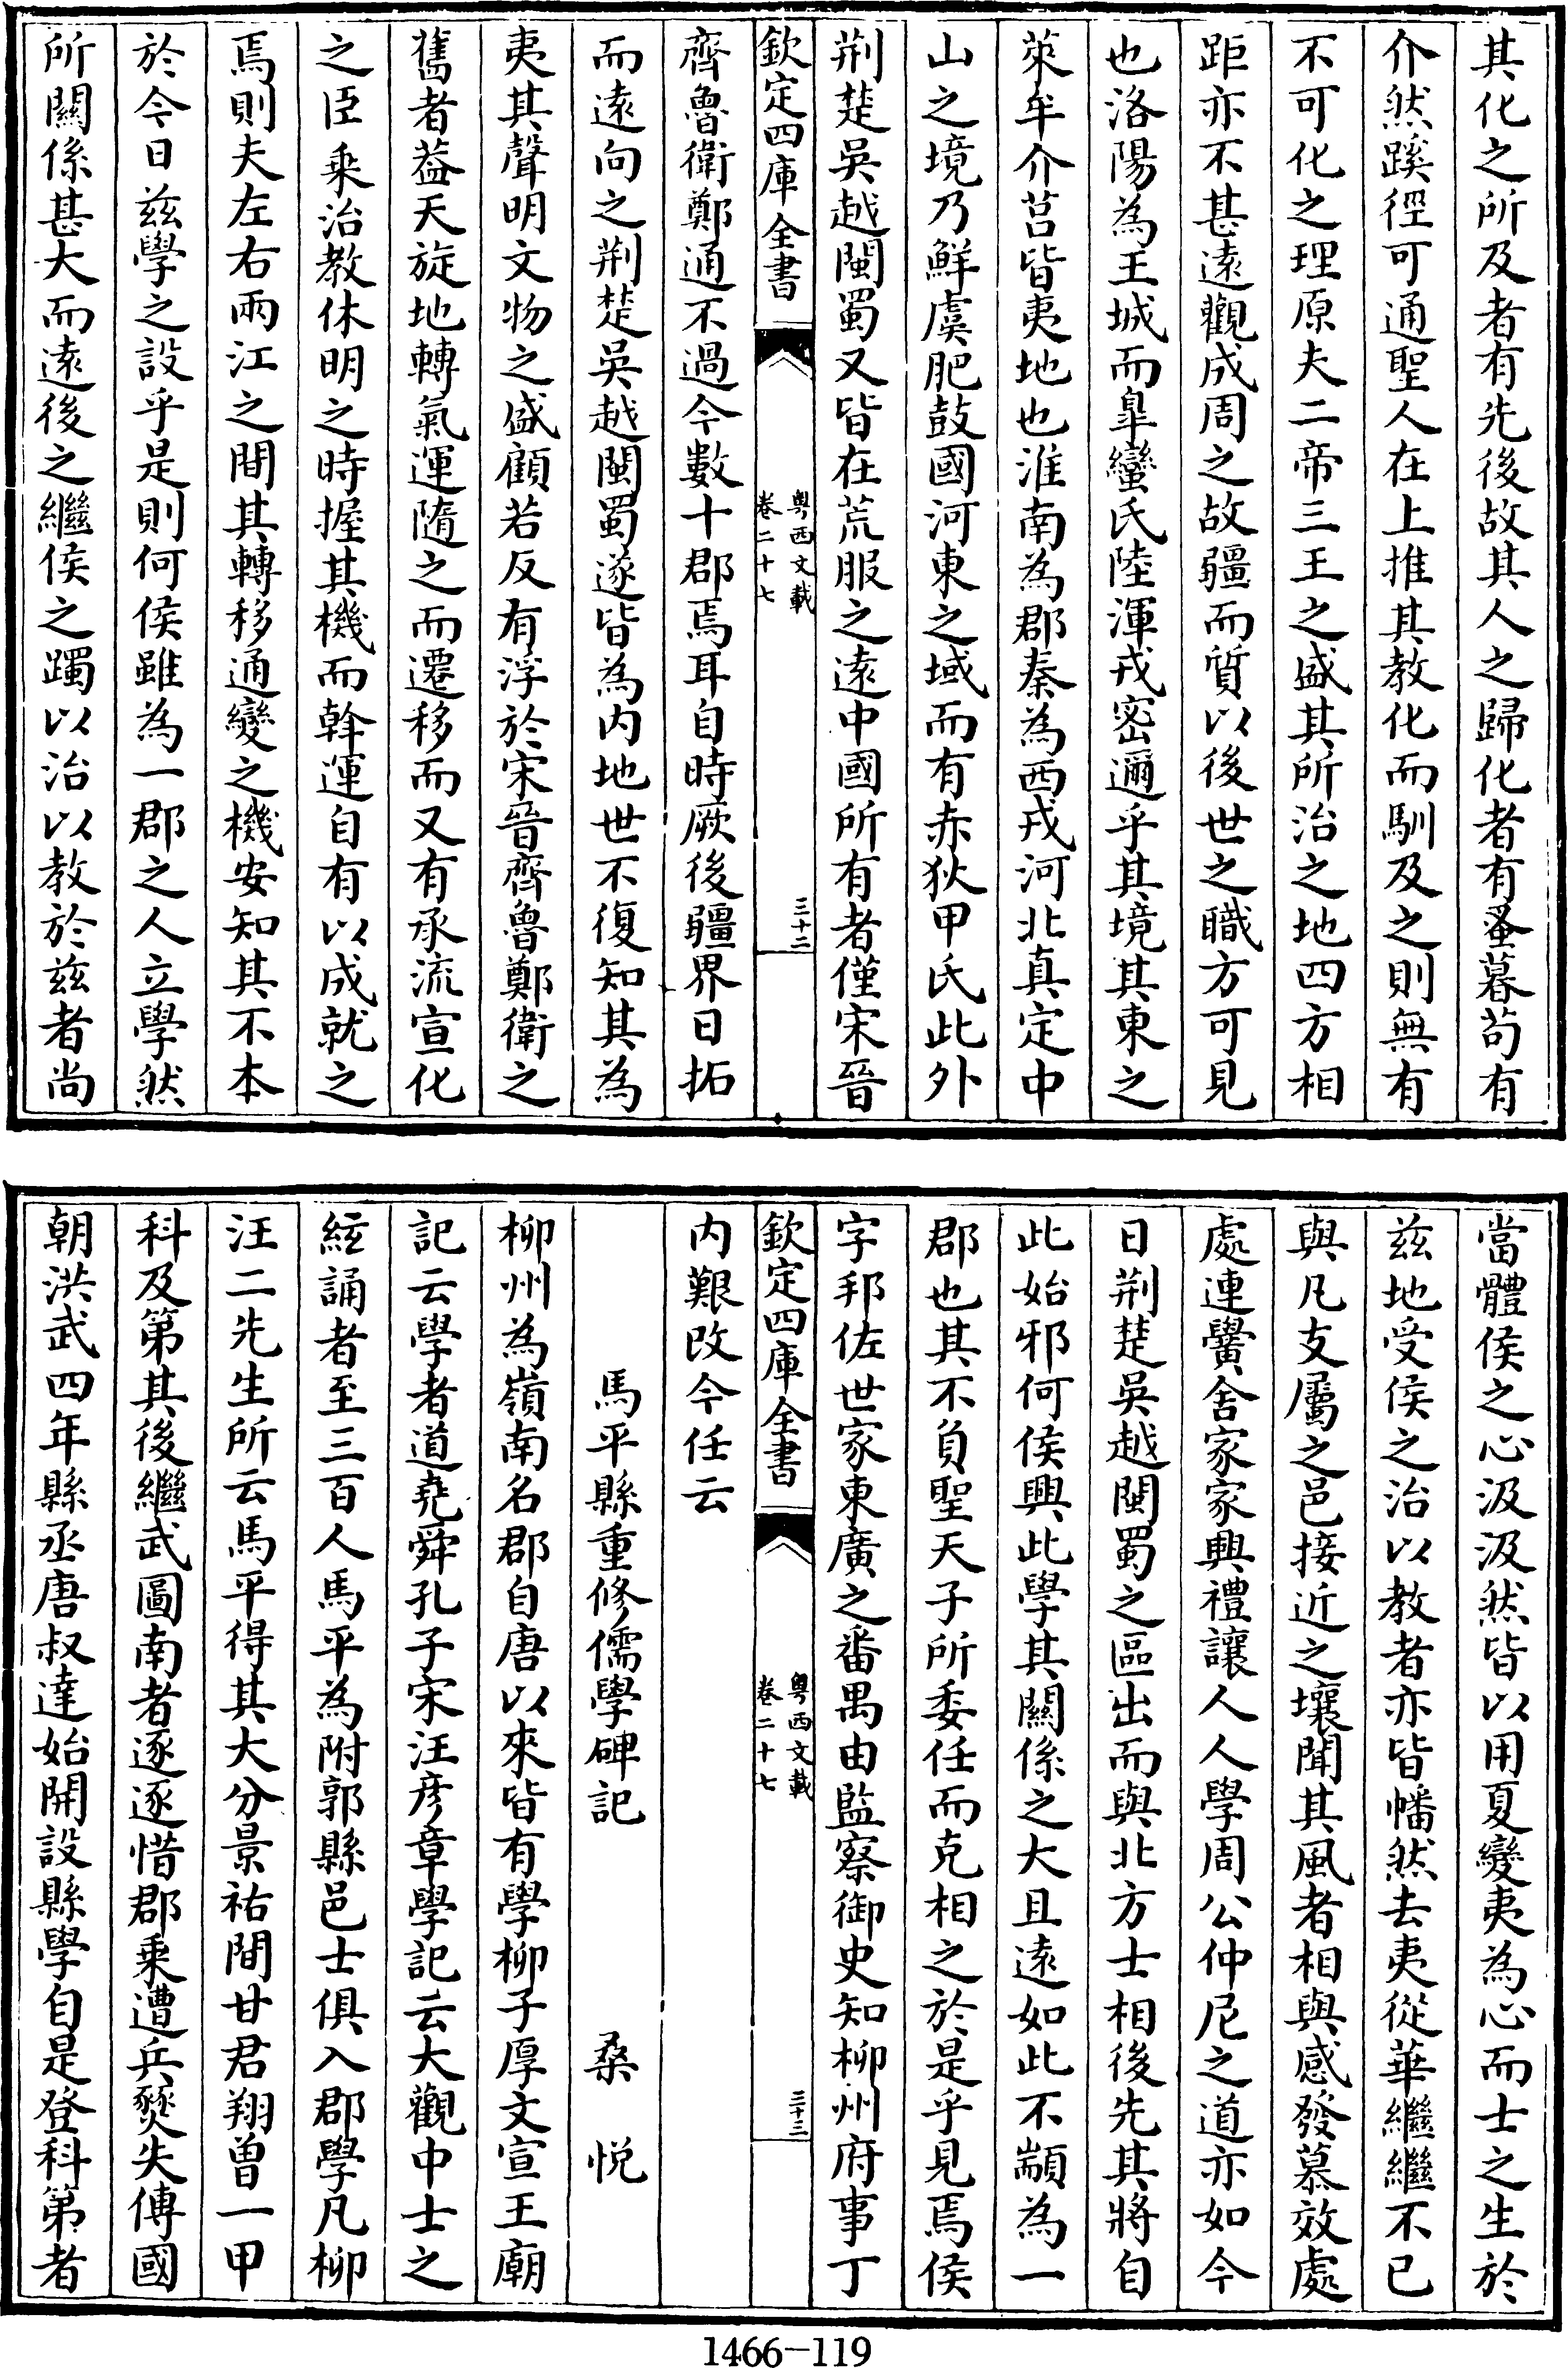 其化之所及者有先後故其人之歸化者有蚤暮茍有
介然蹊徑可通聖人在上推其教化而馴及之則無有
不可化之理原夫二帝三王之盛其所治之地四方相
距亦不甚遠觀成周之故疆而質以後世之職方可見
也洛陽為王城而臯蠻氏陸渾戎密邇乎其境其東之
萊牟介莒皆夷地也淮南為郡秦為西戎河北真定中
山之境乃鮮虞肥鼓國河東之域而有赤狄甲氏此外
荆楚吳越閩蜀又皆在荒服之遠中國所有者僅宋晉
欽定四庫全書
粵西文載
卷二十七
三十二
齊魯衛鄭通不過今數十郡焉耳自時厥後疆界日拓
而遠向之荆楚吳越閩蜀遂皆為内地世不復知其為
夷其聲明文物之盛顧若反有浮於宋晉齊魯鄭衛之
舊者葢天旋地轉氣運隨之而遷移而又有承流宣化
之臣乘治教休明之時握其機而斡運自有以成就之
焉則夫左右兩江之間其轉移通變之機安知其不本
於今日兹學之設乎是則何侯雖為一郡之人立學然
所關係甚大而遠後之繼侯之躅以治以教於兹者尚
當體侯之心汲汲然皆以用夏變夷為心而士之生於
兹地受侯之治以教者亦皆幡然去夷從華繼繼不已
與凡支屬之邑接近之壤聞其風者相與感發慕效處
處連黌舍家家興禮讓人人學周公仲尼之道亦如今
日荆楚吳越閩蜀之區出而與北方士相後先其將自
此始邪何侯興此學其關係之大且遠如此不顓為一
郡也其不負聖天子所委任而克相之於是乎見焉侯
字邦佐世家東廣之番禺由監察御史知柳州府事丁
欽定四庫全書
粵西文載
卷二十七
三十三
内艱改今任云
馬平縣重修儒學碑記 桑悅
柳州為嶺南名郡自唐以來皆有學柳子厚文宣王廟
記云學者道堯舜孔子宋汪彦章學記云大觀中士之
絃誦者至三百人馬平為附郭縣邑士俱入郡學凡柳
汪二先生所云馬平得其大分景祐間甘君翔曽一甲
科及第其後繼武圖南者逐逐惜郡乘遭兵燹失傳國
朝洪武四年縣丞唐叔達始開設縣學自是登科第者
1466-119